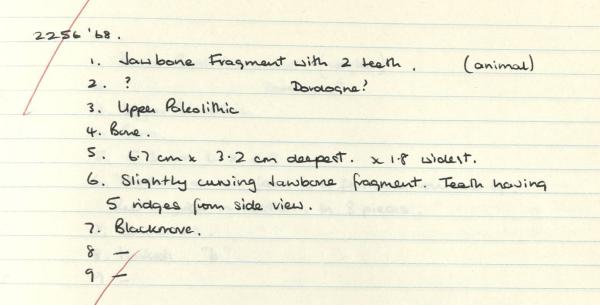 2256 '68.
1. Jawbone Fragment with 2 teeth. (animal)
2. ? Dordogne?
3. Upper Paleolithic
4. Bone.
5. 6.7 cm x 3.2 cm deepest. x 1.8 widest.
6. Slightly curving Jawbone fragment. Teeth having
5 ridges from side view.
7. Blackmore.
8 —
9 —